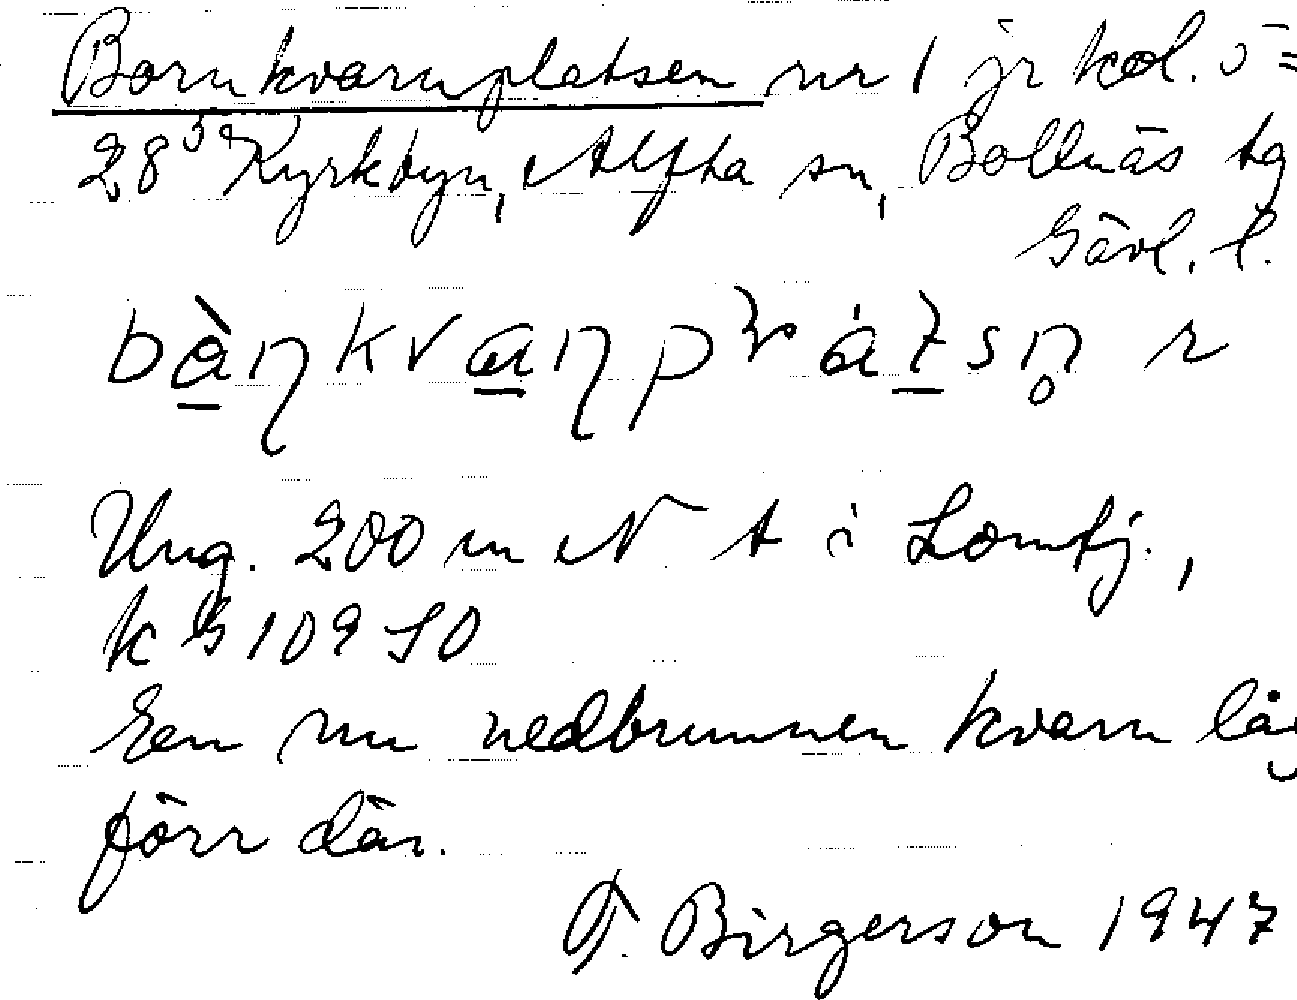 Barnkvarnplatsen nr 1 jr kol. 5 =
28⁵ Kyrkbyn, Alfta sn, Bollnäs tg
Gävl. l.
Ung. 200 m N t i Lomtj.,
k G 109 50
En nu nedbrunnen kvarn låg
förr där.
F. Birgerson 1947